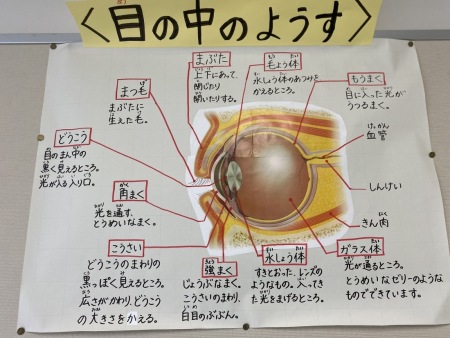 〈目の中のようす〉
まぶた
上下にあって、
閉じたり
開いたりする。
毛よう体
水しょう体のあつみを
かえるところ。
もうまく
目に入った光が
うつるまく。
まつ毛
まぶたに
生えた毛。
けっかん
血管
どうこう
目のまん中の
黒く見えるところ。
光が入る入り口。
角まく
光を通す、
とうめいなまく。
しんけい
きん肉
こうさい
どうこうのまわりの
黒っぽく見えるところ。
広さがかわり、どうこう
の大きさをかえる。
強まく
じょうぶなまく。
こうさいのまわり、
白目のぶぶん。
水しょう体
すきとおった、レンズの
ようなもの。入ってき
た光をまげるところ。
ガラス体
光が通るところ。
とうめいなゼリーのような
ものでできています。